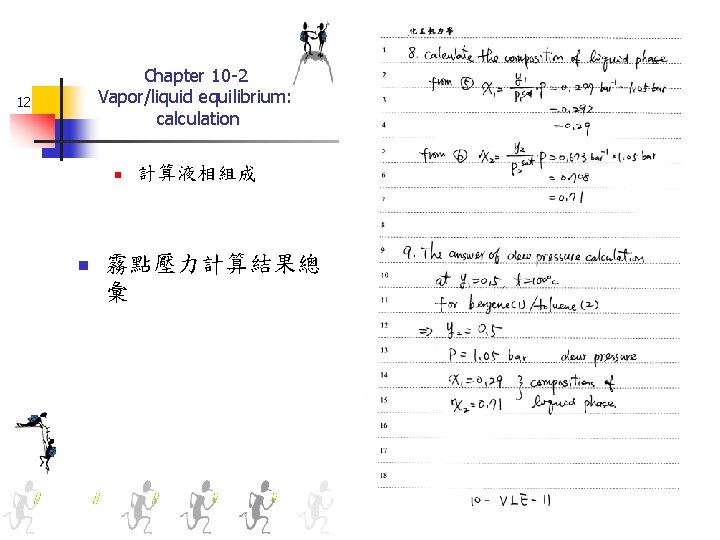 Chapter 10-2
12
Vapor/liquid equilibrium:
calculation
計算液相組成
霧點壓力計算結果總
彙
化工熱力學
1 8. calculate the composition of liquid phase
2 from ⓐ x₁= y₁/P₁sat · P = 0.279 bar⁻¹ × 1.05 bar
3 =0.292
4 =0.29
5 from ⓑ x₂= y₂/P₂sat · P=0.673 bar⁻¹ × 1.05 bar
6 =0.708
7 =0.71
8
9 9. The answer of dew pressure calculation
10 at y₁=0.5, t=100°C
11 for benzene(1)/toluene(2)
12 ⇒ y₂=0.5
13 P=1.05 bar dew pressure
14 x₁=0.29 } composition of
15 x₂=0.71 liquid phase
16
17
18
10-VLE-11